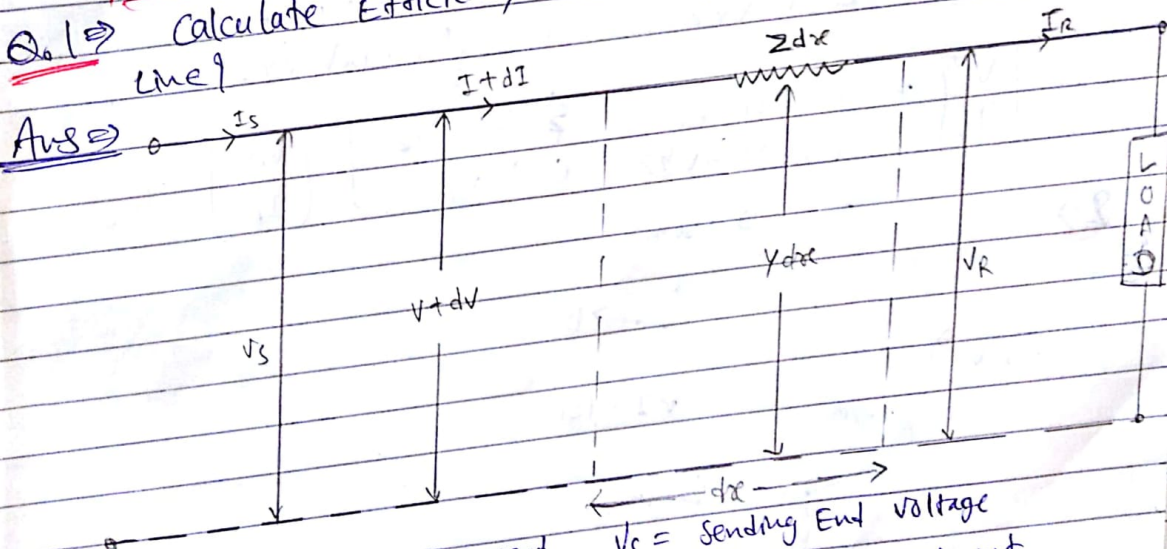 Q.1⇒ Calculate
Line?
Ans⇒
IS
I+dI
Zdx
IR
VS
V+dV
Ydx
VR
LOAD
dx
VS = Sending End Voltage